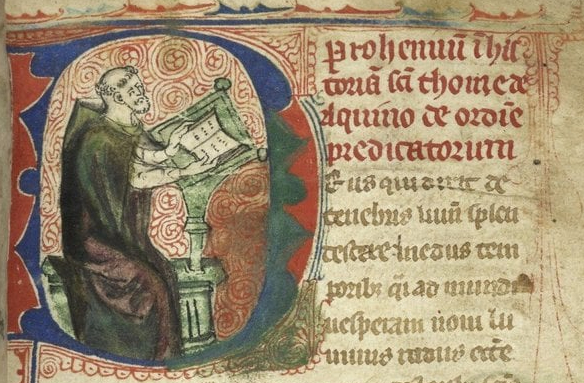 Prohemiū ī his
toriā sci thome de
aquino de ordīe
predicatorum
Deus qui dixit de
tenebris lumē splen
descere tem
poribꝫ qi ad mundi
uesperam noui lu
minis radius